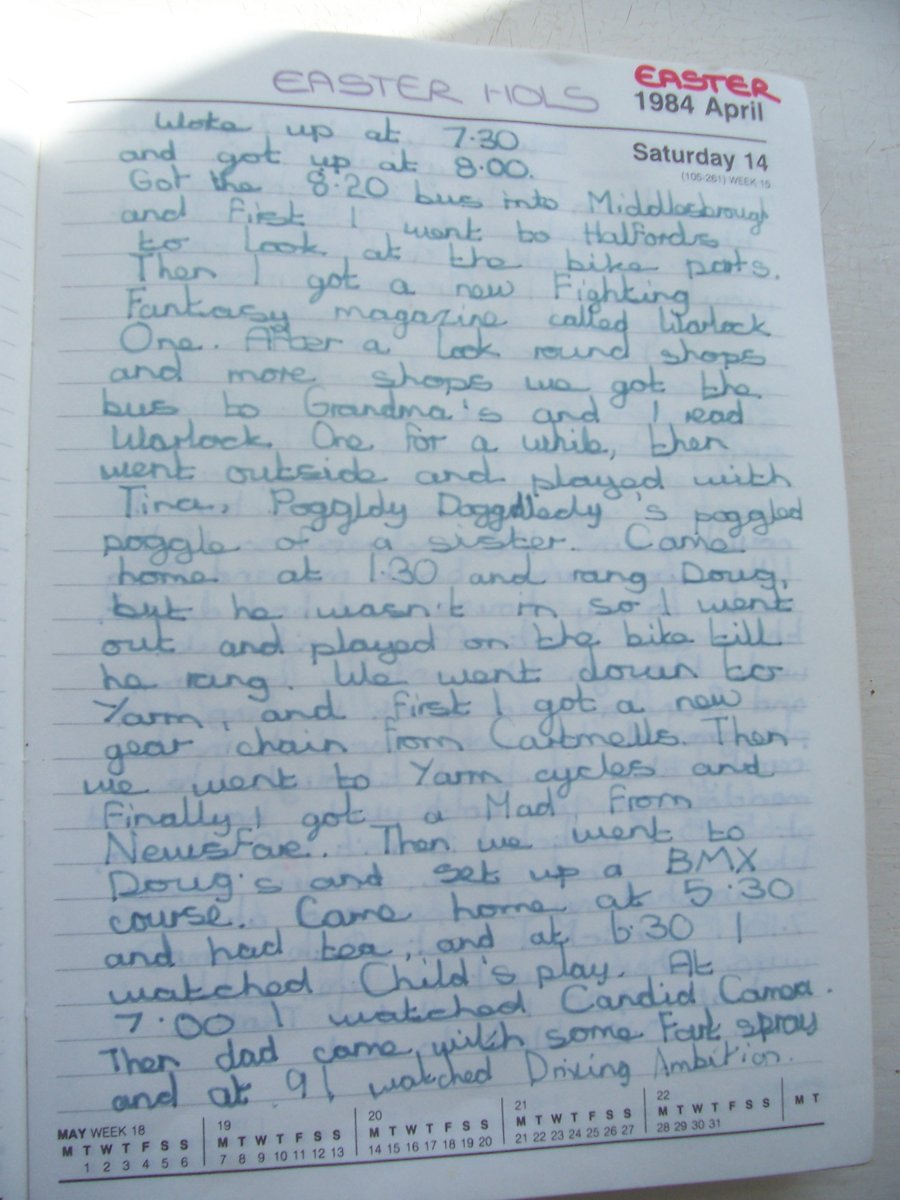 EASTER HOLS
EASTER
1984 April
Saturday 14
(105-261) WEEK 15
Woke up at 7.30
and got up at 8.00.
Got the 8.20 bus into Middlesbrough
and first I went to Halfords
to look at the bike parts.
Then I got a new Fighting
Fantasy magazine called Warlock
One. After a look round shops
and more shops we got the
bus to Grandma's and I read
Warlock One for a while, then
went outside and played with
Tina, Poggldy Doggdledy's poggled
poggle of a sister. Came
home at 1.30 and rang Doug,
but he wasn't in so I went
out and played on the bike till
he rang. We went down to
Yarm, and first I got a new
gear chain from Cartmells. Then
we went to Yarm cycles and
finally I got a Mad from
Newsfare. Then we went to
Doug's and set up a BMX
course. Came home at 5.30
and had tea, and at 6.30 I
watched Child's play. At
7.00 I watched Candid Camera.
Then dad came with some Fart spray
and at 9 I watched Driving Ambition.
MAY WEEK 18 19 20 21 22
M T W T F S S M T W T F S S M T W T F S S M T W T F S S M T W T F S S M T
1 2 3 4 5 6 7 8 9 10 11 12 13 14 15 16 17 18 19 20 21 22 23 24 25 26 27 28 29 30 31